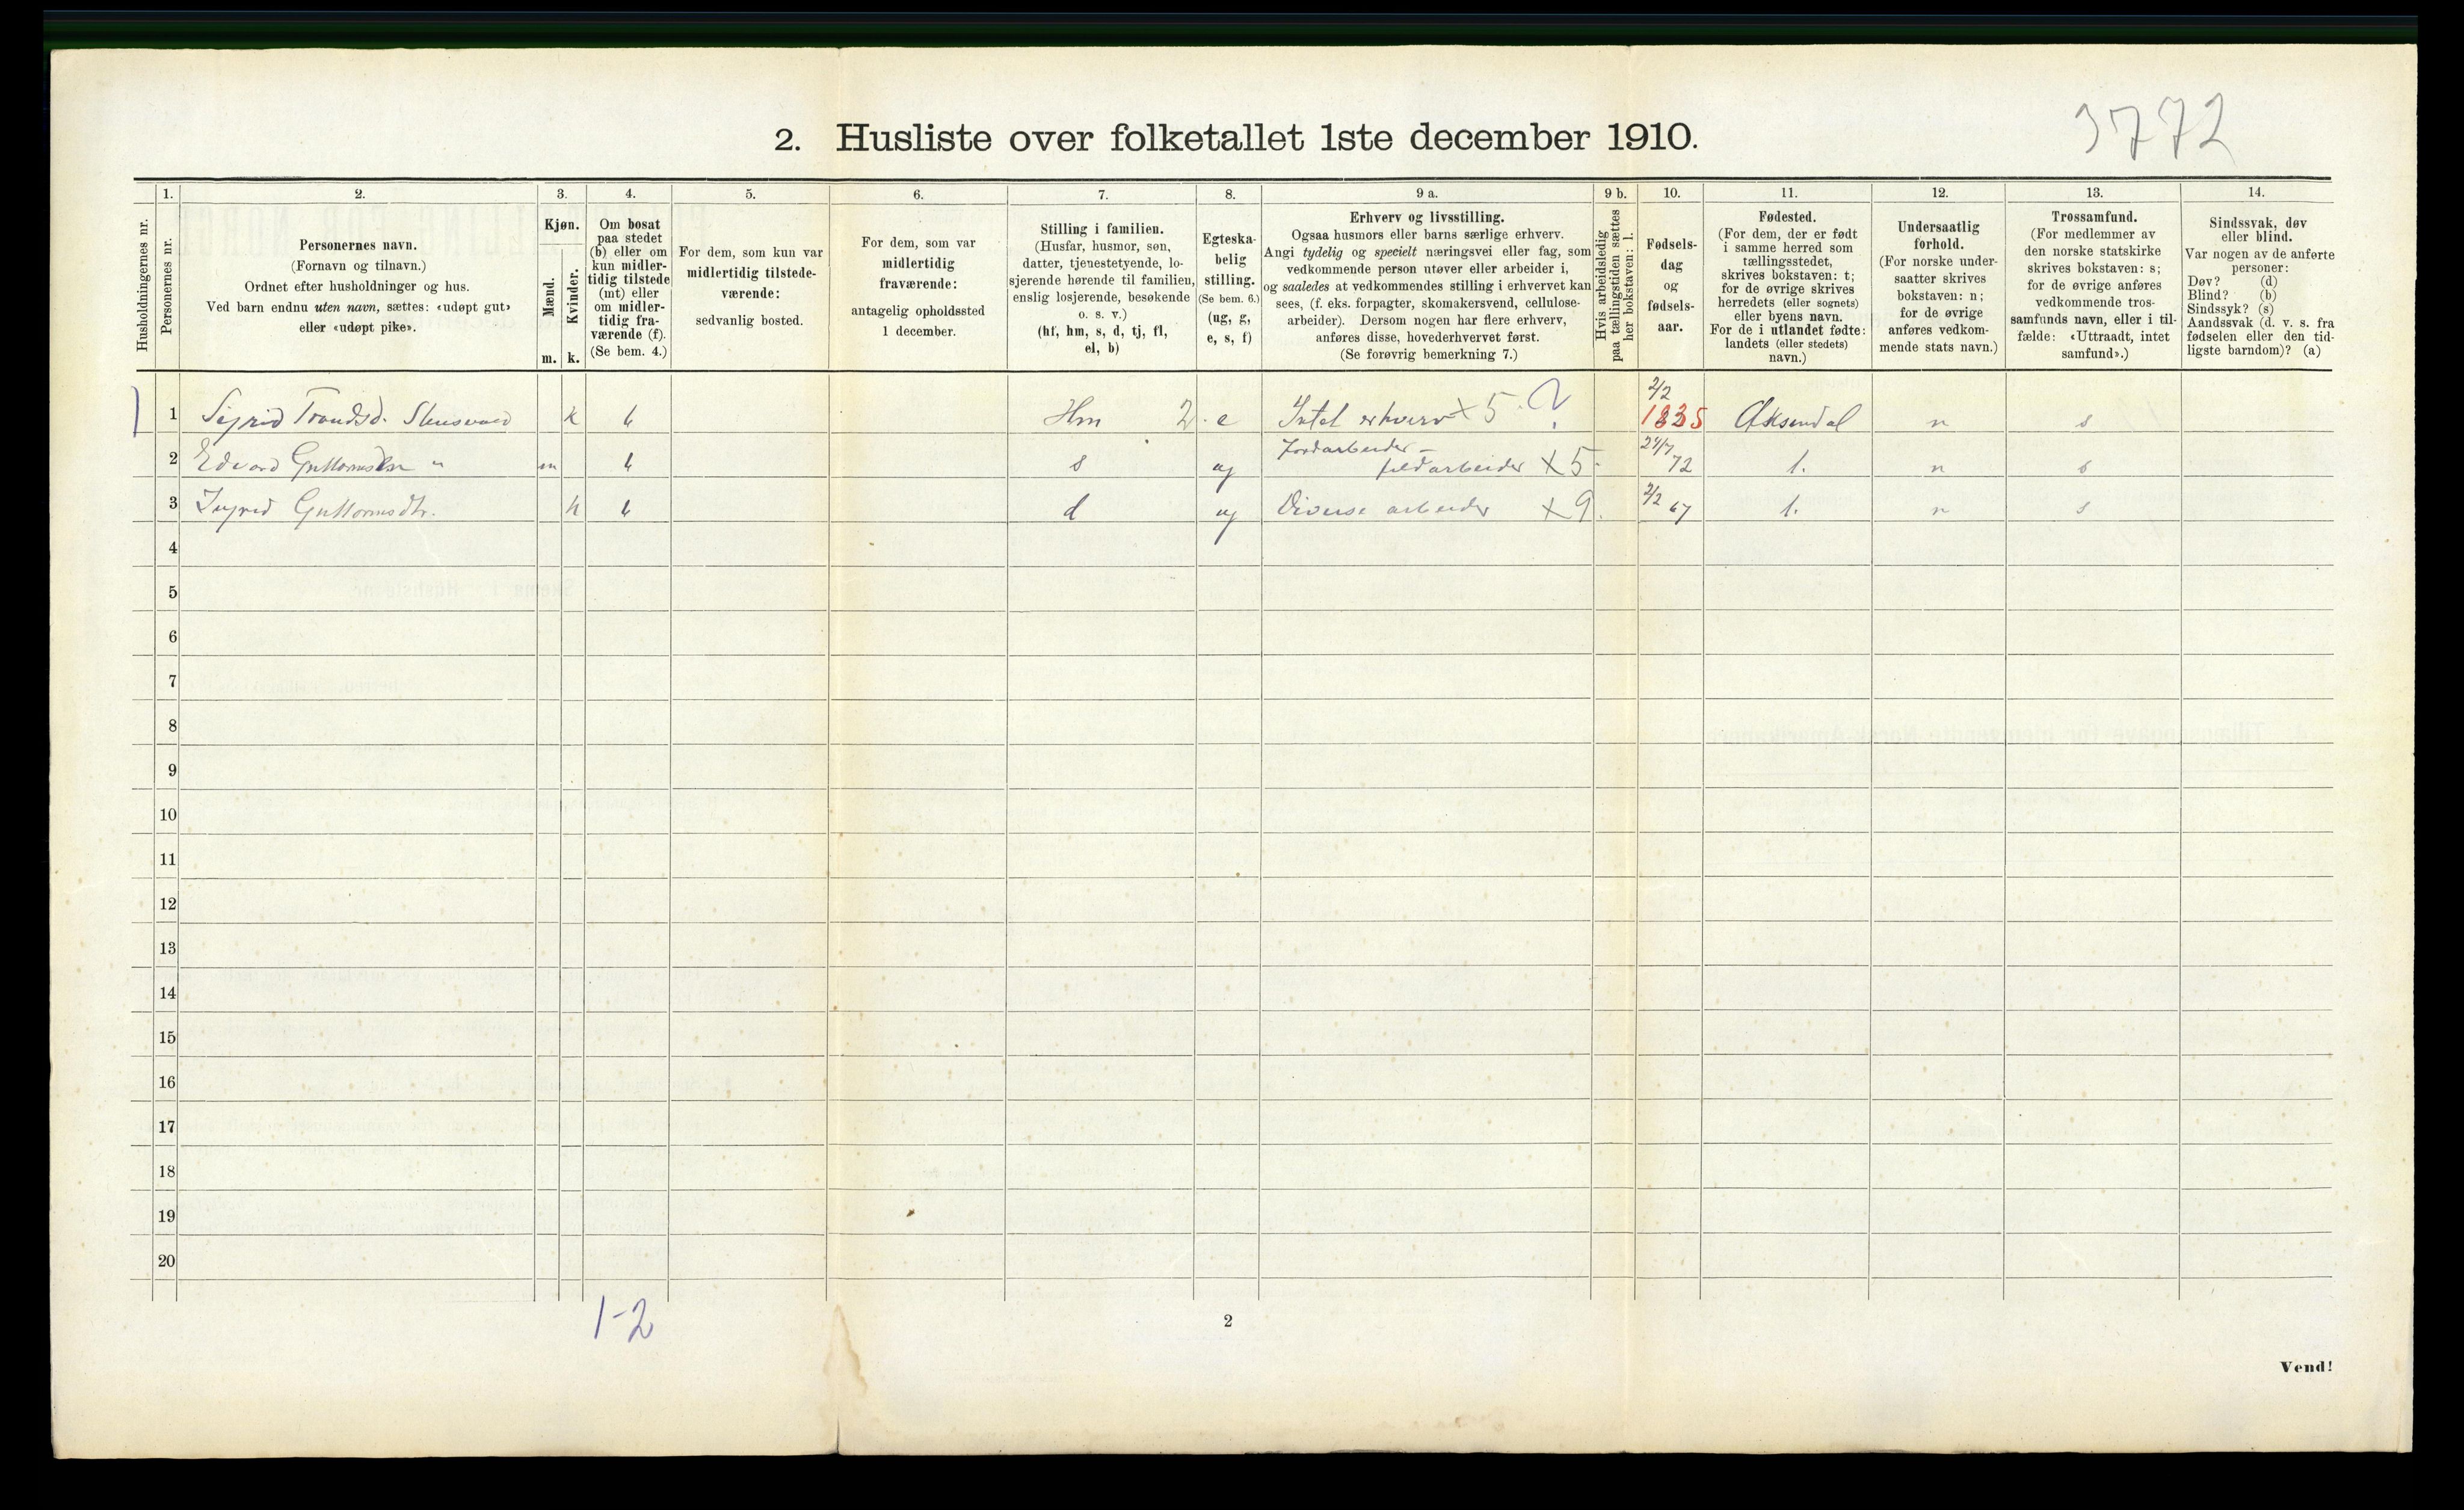 3772
2. Husliste over folketallet 1ste december 1910.
Husholdningernes nr.
1.
Personernes nr.
2.
Personernes navn.
(Fornavn og tilnavn.)
Ordnet efter husholdninger og hus.
Ved barn endnu uten navn, sættes: «udøpt gut»
eller «udøpt pike».
3.
Kjøn.
Mænd.
Kvinder.
m. k.
4.
Om bosat
paa stedet
(b) eller om
kun midler-
tidig tilstede
(mt) eller
om midler-
tidig fra-
værende (f).
(Se bem. 4.)
5.
For dem, som kun var
midlertidig tilstede-
værende:
sedvanlig bosted.
6.
For dem, som var
midlertidig
fraværende:
antagelig opholdssted
1 december.
7.
Stilling i familien.
(Husfar, husmor, søn,
datter, tjenestetyende, lo-
sjerende hørende til familien,
enslig losjerende, besøkende
o. s. v.)
(hf, hm, s, d, tj, fl,
el, b)
8.
Egteska-
belig
stilling.
(Se bem. 6.)
(ug, g,
e, s, f)
9 a.
Erhverv og livsstilling.
Ogsaa husmors eller barns særlige erhverv.
Angi tydelig og specielt næringsvei eller fag, som
vedkommende person utøver eller arbeider i,
og saaledes at vedkommendes stilling i erhvervet kan
sees, (f. eks. forpagter, skomakersvend, cellulose-
arbeider). Dersom nogen har flere erhverv,
anføres disse, hovederhvervet først.
(Se forøvrig bemerkning 7.)
9 b.
Hvis arbeidsledig
paa tællingstiden sættes
her bokstaven: l.
10.
Fødsels-
dag
og
fødsels-
aar.
11.
Fødested.
(For dem, der er født
i samme herred som
tællingsstedet,
skrives bokstaven: t;
for de øvrige skrives
herredets (eller sognets)
eller byens navn.
For de i utlandet fødte:
landets (eller stedets)
navn.)
12.
Undersaatlig
forhold.
(For norske under-
saatter skrives
bokstaven: n;
for de øvrige
anføres vedkom-
mende stats navn.)
13.
Trossamfund.
(For medlemmer av
den norske statskirke
skrives bokstaven: s;
for de øvrige anføres
vedkommende tros-
samfunds navn, eller i til-
fælde: «Uttraadt, intet
samfund».)
14.
Sindssvak, døv
eller blind.
Var nogen av de anførte
personer:
Døv? (d)
Blind? (b)
Sindssyk? (s)
Aandssvak (d. v. s. fra
fødselen eller den tid-
ligste barndom)? (a)
1 Sigrid Trondsd. k b Hm 2 e Intet erhverv X 5 ? 2/2 1835 n s
2 Edvard Guttormsen " m b s ug Jordarbeider - X 5 24/7 72 t. n s
3 Ingrid Guttormsdtr. k b d ug Diverse arbeider X 9. 2/2 67 t. n s
4
5
6
7
8
9
10
11
12
13
14
15
16
17
18
19
20
1-2
2
Vend!